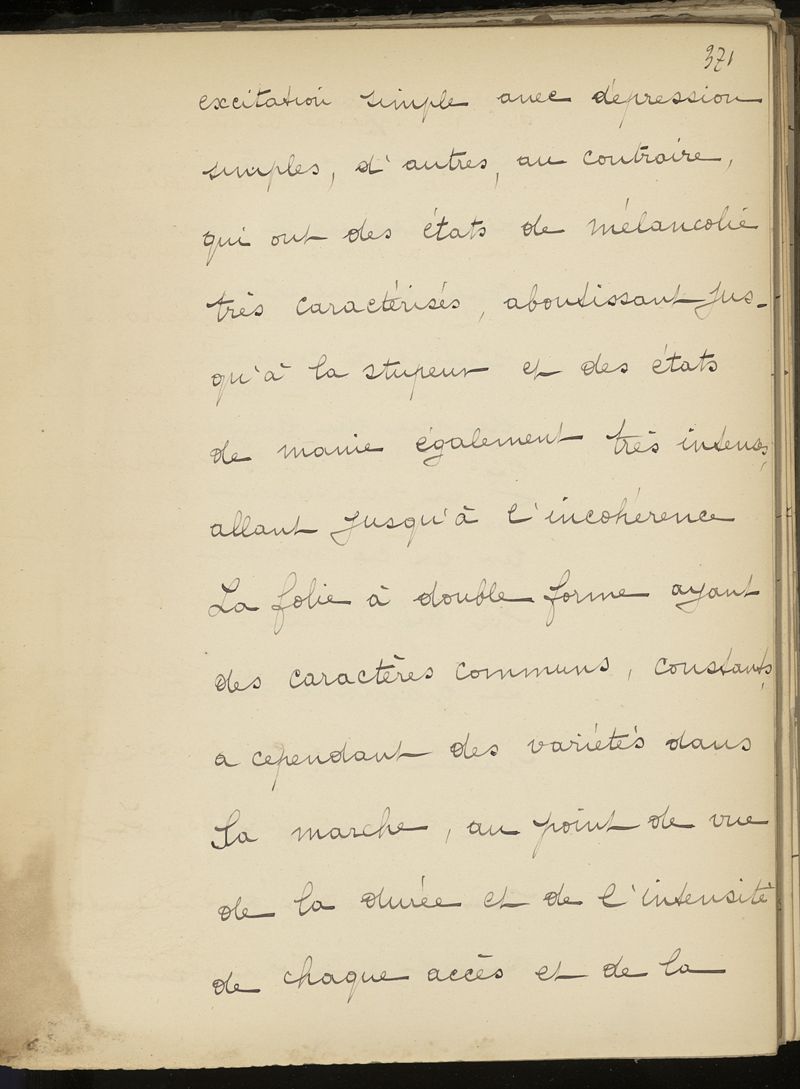 371
excitation simple avec dépression
simples, d'autres, au contraire,
qui ont des états de mélancolie
très caractérisés, aboutissant jus-
qu'à la stupeur et des états
de manie également très intenses,
allant jusqu'à l'incohérence
La folie à double forme ayant
des caractères communs, constants,
a cependant des variétés dans
sa marche, au point de vue
de la durée et de l'intensité
de chaque accès et de la